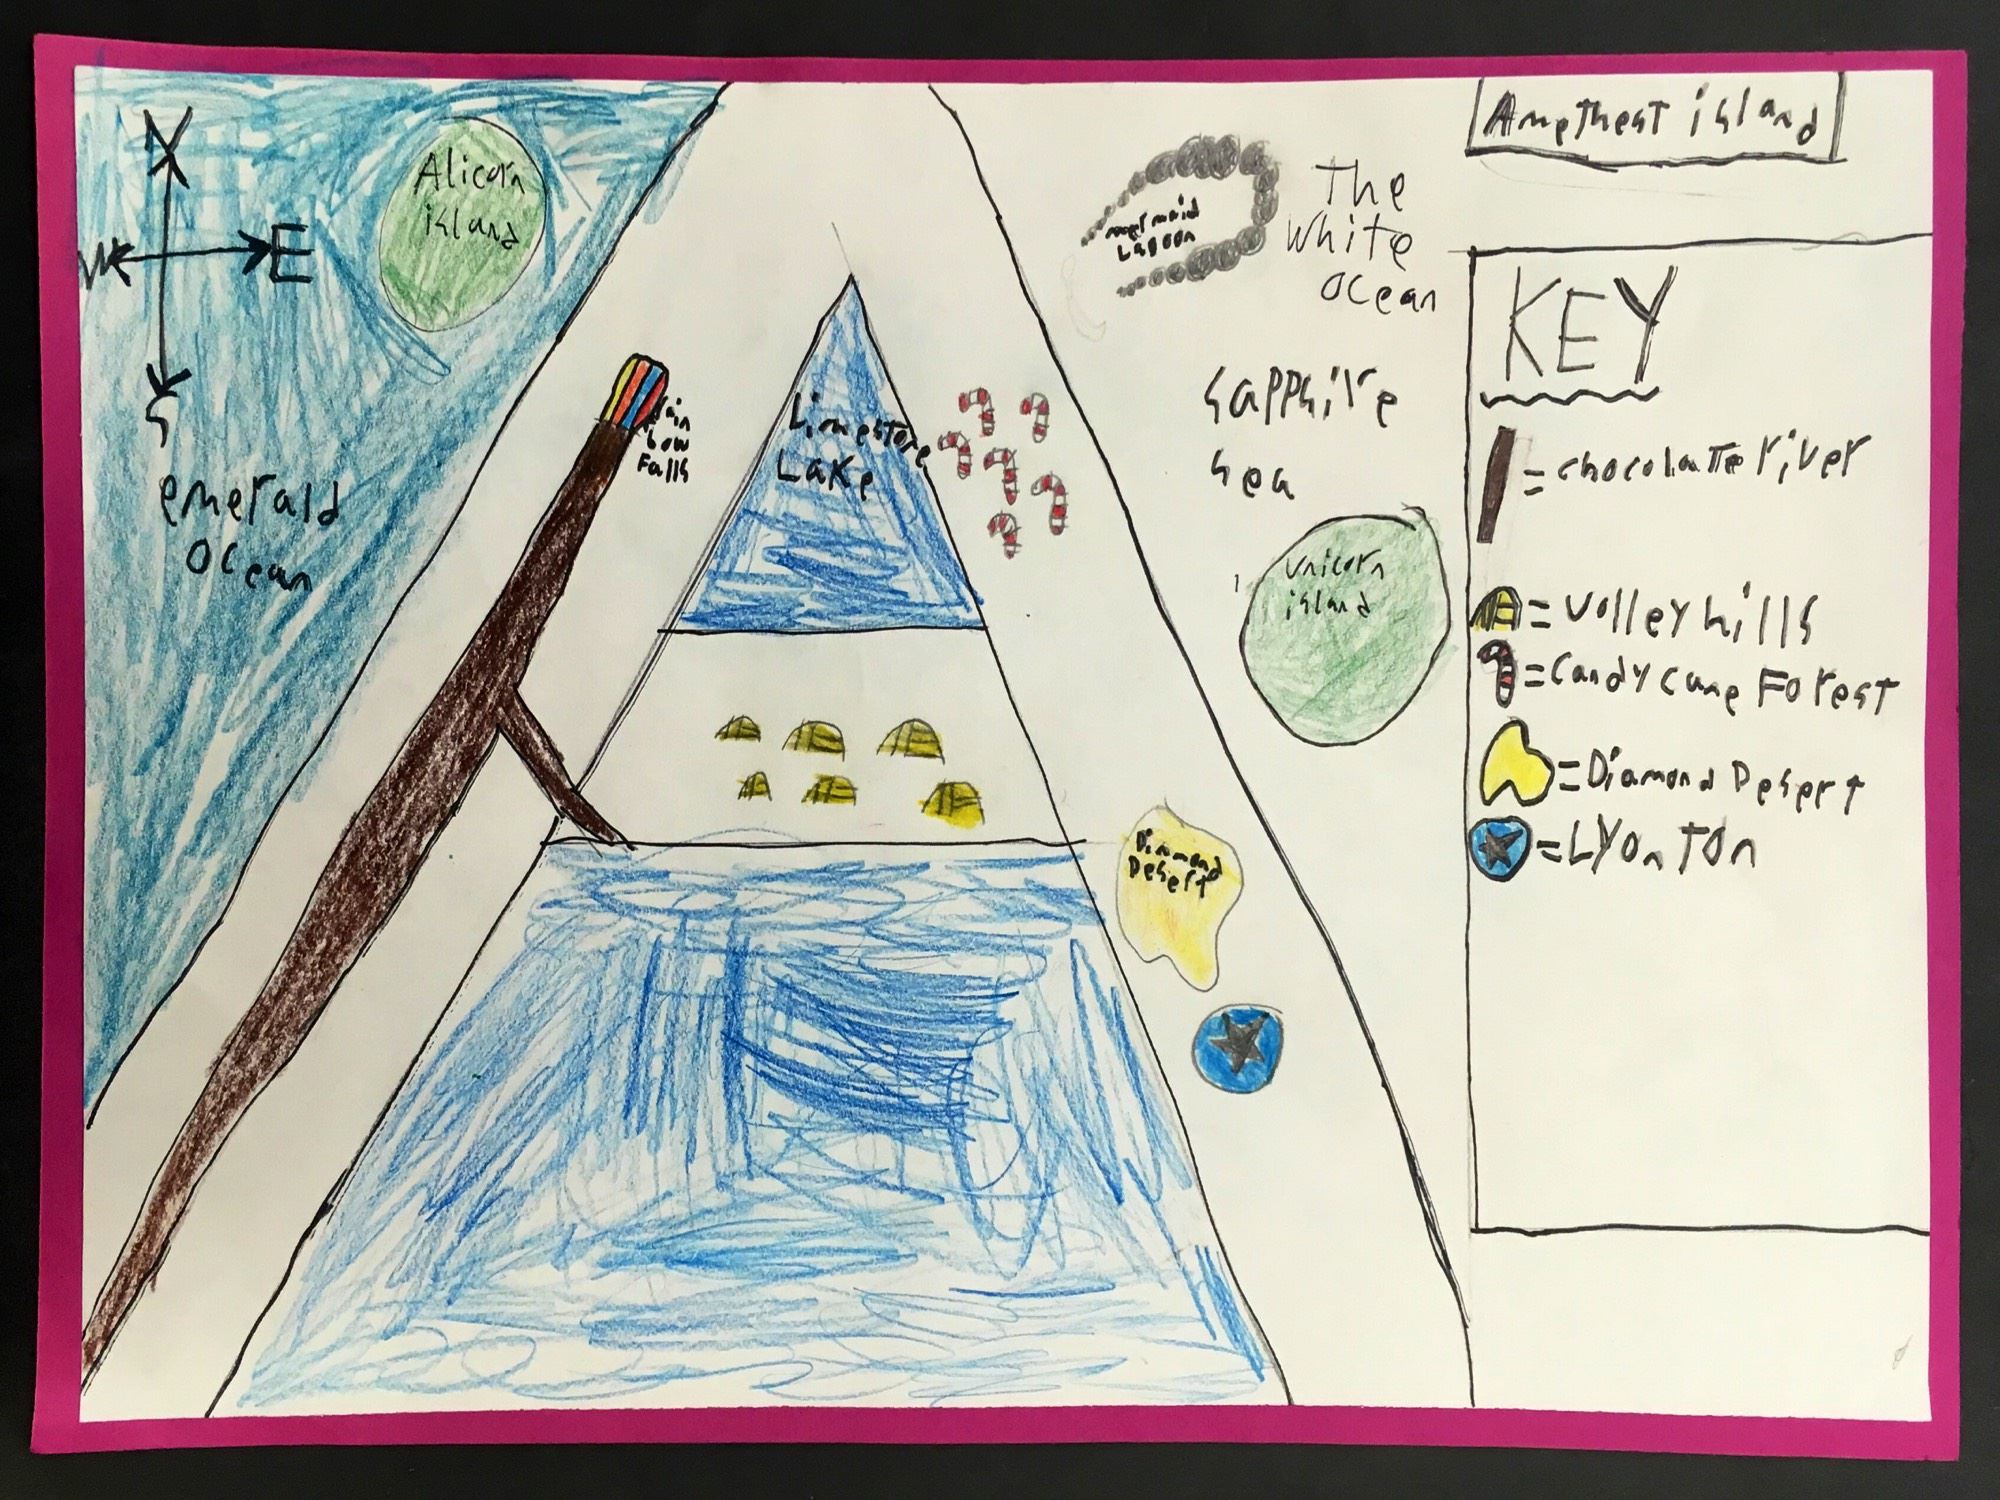 Amethest island
N
W
E
S
Alicorn
island
emerald
ocean
rain
bow
Falls
Limestone
Lake
mermaid
Lagoon
The
White
ocean
sapphire
sea
unicorn
island
Diamond
Desert
KEY
= chocolatte river
= volley hills
= candy cane Forest
= Diamond Desert
= Lyonton